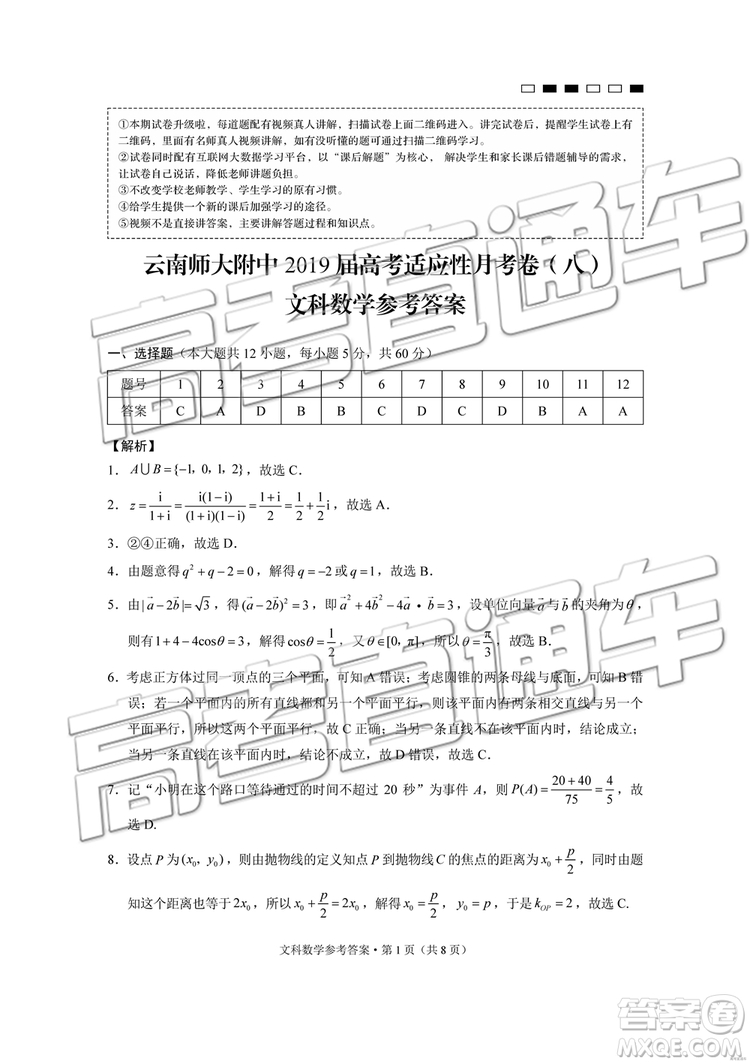 ①本期试卷升级啦，每道题配有视频真人讲解，扫描试卷上面二维码进入。讲完试卷一段时间后，配有
二维码，里面有名师真人视频讲解，如有没听懂的题可以通过扫描二维码学习。
②试卷同时配有互联网大数据学习平台，以“课后解题”为核心，解决学生和家长课后错题辅导的需求，
让试卷自己说话，降低老师讲题负担。
③不改变学校老师教学、学生学习的原有习惯。
④给学生提供一个新的课后加强学习的途径。
⑤视频不是直接讲答案，主要讲解答题过程和知识点。
云南师大附中 2019 届高考适应性月考卷（八）
文科数学参考答案
一、选择题（本大题共 12 小题，每小题 5 分，共 60 分）
题号 1 2 3 4 5 6 7 8 9 10 11 12
答案 C A D B B C D C D B A A
【解析】
1．A∪B={-1，0，1，2}，故选 C．
2．z=i/(1+i)=i(1-i)/((1+i)(1-i))=(1+i)/2=1/2+1/2i，故选 A．
3．②④正确，故选 D．
4．由题意得q²+q-2=0，解得q=-2或q=1，故选 B．
5．由|a⃗-2b⃗|=√3，得(a⃗-2b⃗)²=3，即a⃗²+4b⃗²-4a⃗•b⃗=3，设单位向量a⃗与b⃗的夹角为θ，
则有1+4-4cosθ=3，解得cosθ=1/2，又θ∈[0，π]，所以θ=π/3，故选 B．
6．考虑正方体过同一顶点的三个平面，可知 A 错误；考虑圆锥的两条母线与底面，可知 B 错
误；若一个平面内的所有直线都与另一个平面平行，则该平面内的两条相交直线与另一个
平面平行，所以这两个平面平行，故 C 正确；当另一条直线不在该平面内时，结论成立，
当另一条直线在该平面内时，结论不成立，故 D 错误，故选 C．
7．记“小明在这个路口等待通过的时间不超过 20 秒”为事件 A，则P(A)=(20+40)/75=4/5，故
选 D．
8．设点 P 为(x₀，y₀)，则由抛物线的定义知点 P 到抛物线C的焦点的距离为x₀+p/2，同时由题
知这个距离也等于2x₀，所以x₀+p/2=2x₀，解得x₀=p/2，y₀=p，于是k_OP=2，故选 C．
文科数学参考答案·第 1 页（共 8 页）
高考直通车
高考直通车
答案圈
MXQE.COM